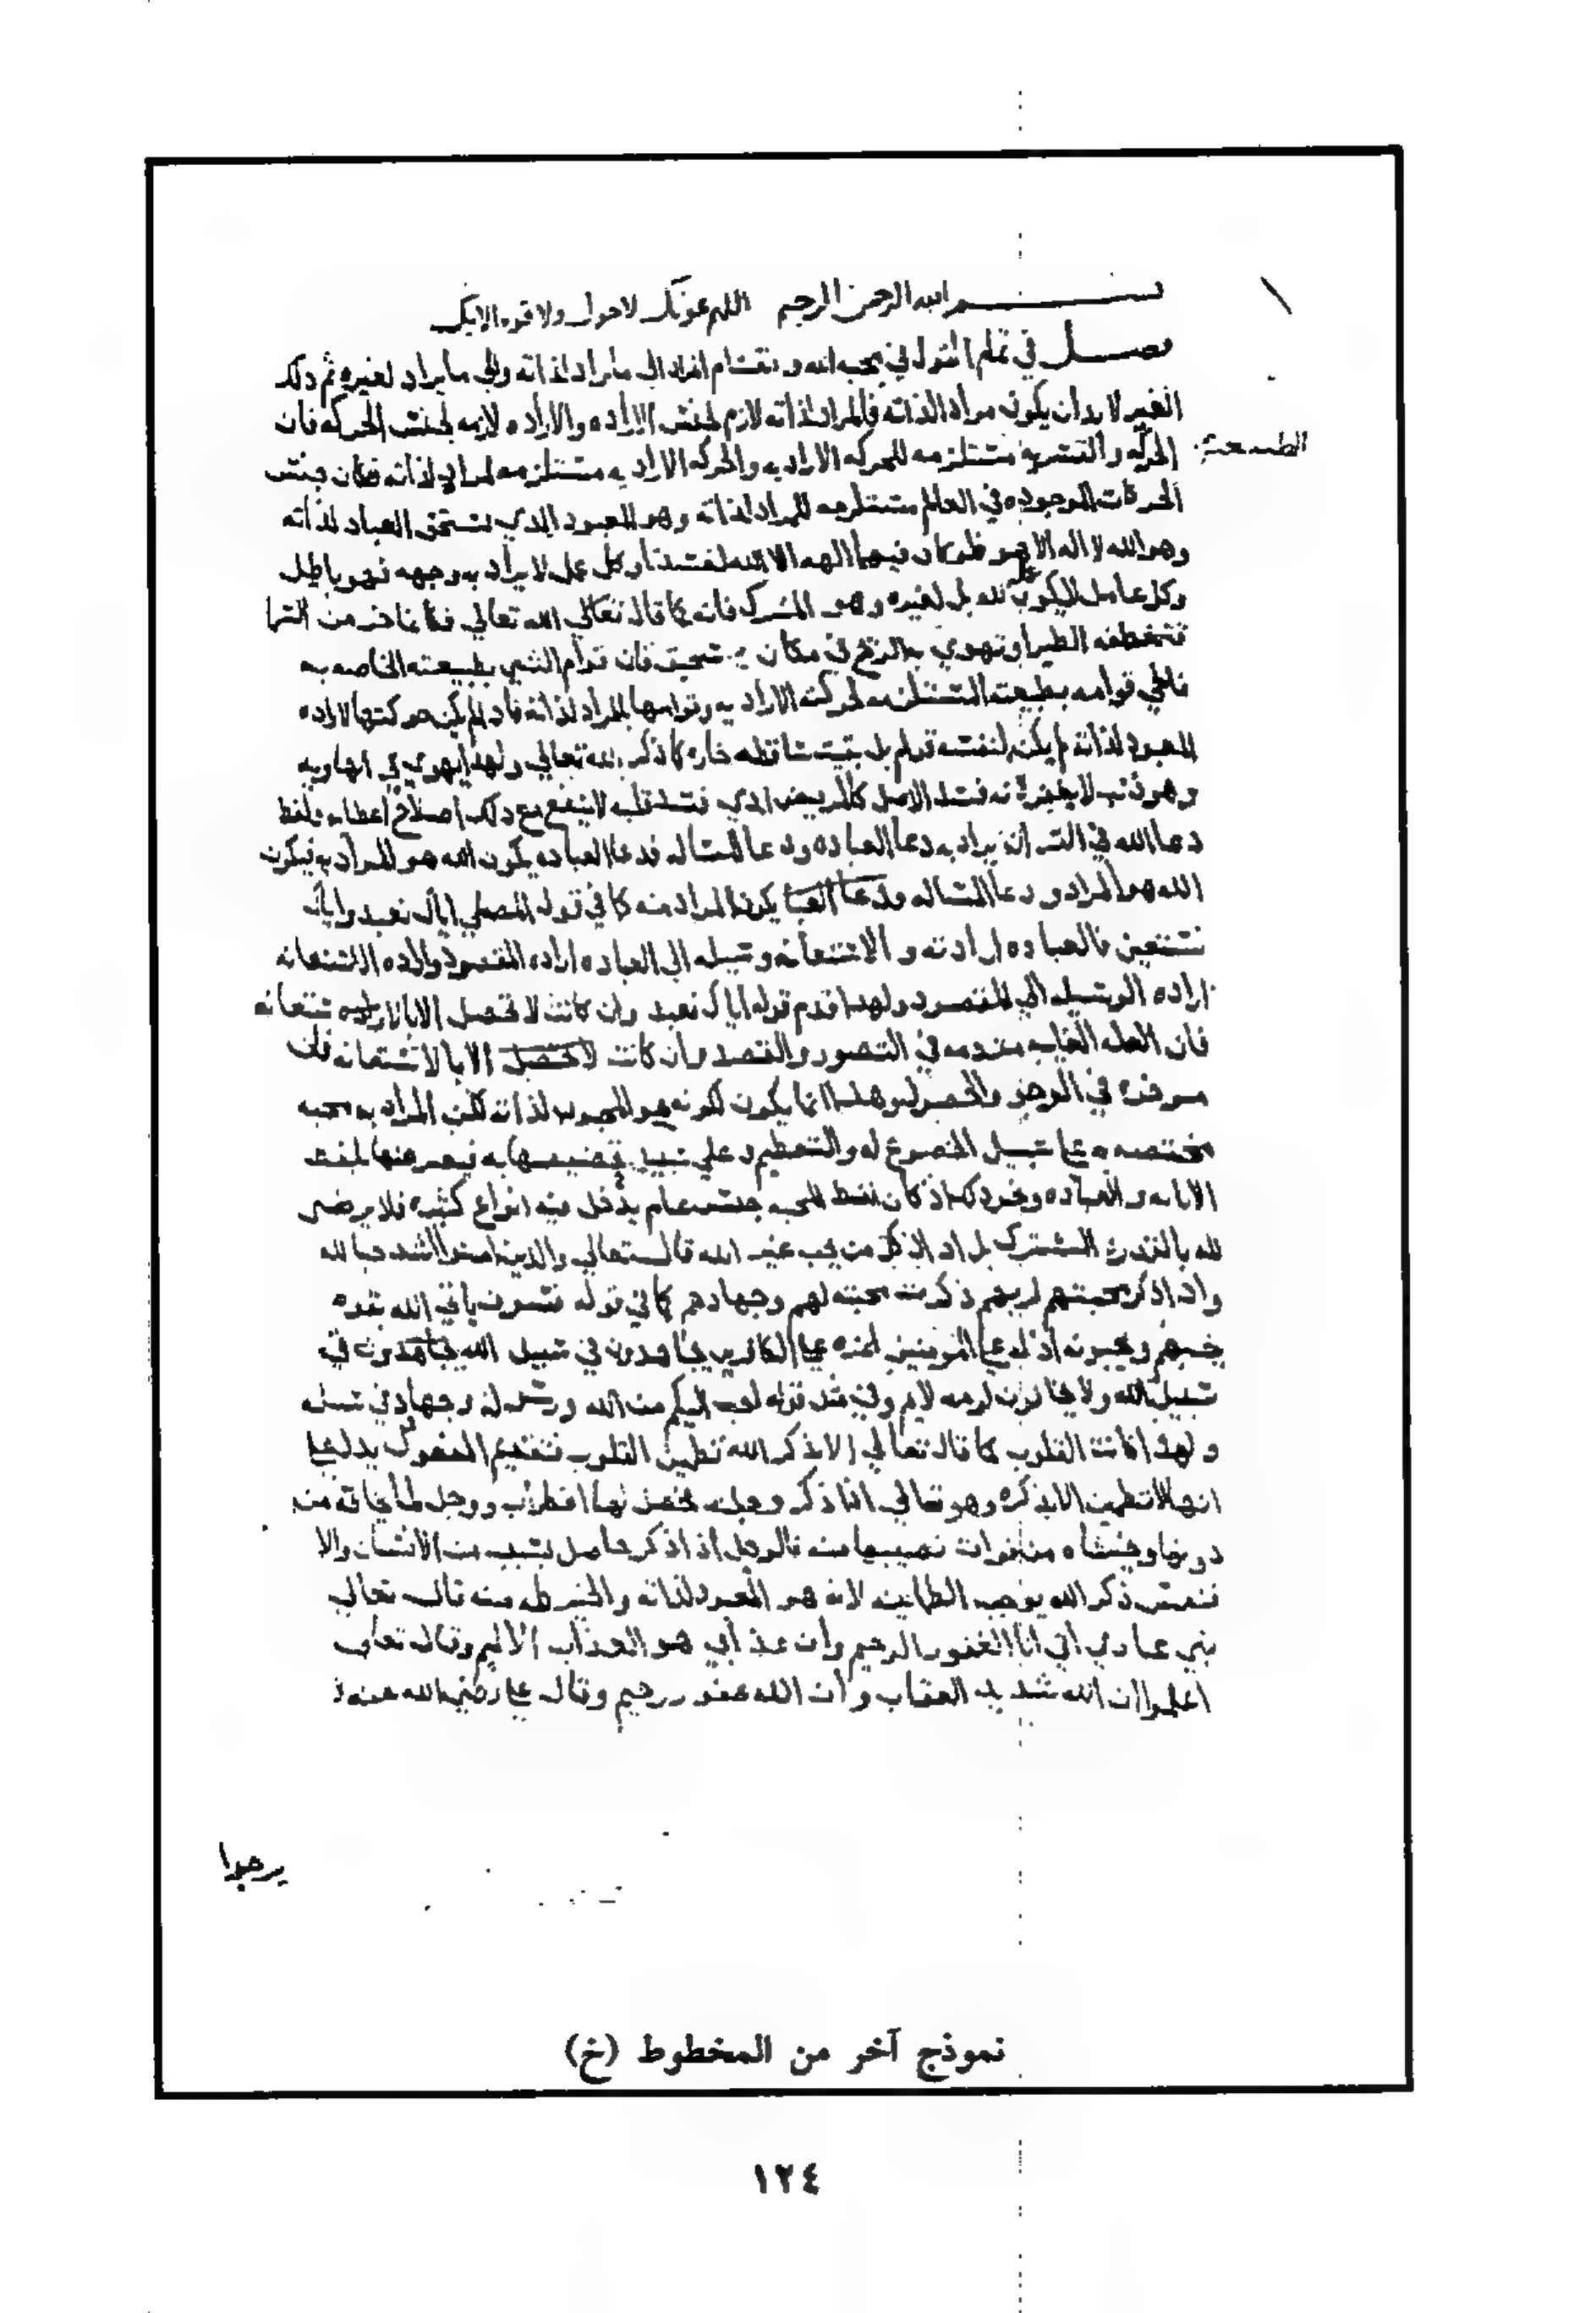 بسم الله الرحمن الرحيم اللهم عونك لا حول ولا قوه الا بك
فصل في تمام القول في محبه الله وانقسام المراد الى ما يراد لذاته والى ما يراد لغيره ثم ذلك
الغير لا بد ان يكون مرادا لذاته فالمراد لذاته لازم لجنس الاراده والاراده لازمه لجنس الحركه فان
الطبيعية
الحركه والقسريه مستلزمه للحركه الاراديه والحركه الاراديه مستلزمه لمراد لذاته فكان جنس
الحركات الموجوده في العالم مستلزمه للمراد لذاته وهو المعبود الذي يستحق العباد لذاته
وهو الله لا اله الا هو فلو كان فيهما الهه الا الله لفسدتا وكل عمل لا يراد به وجهه فهو باطل
وكل عامل لا يكون لله بل لغيره وهو المشرك فانه كما قال تعالي الله تعالي فكانما خر من السما
فتخطفه الطير او تهوي به الريح في مكان سحيق فان قوام الشي بطبيعته الخاصه به
فالحي قوامه بطبيعته المستلزمه لحركته الاراديه وقوامها بالمراد لذاته فاذا لم يكن حركتها لاراده
المعبود لذاته لم يكن لنفسه قوام بل بقيت ساقطه خاره كما ذكر الله تعالي ولهذا يهوي في الهاويه
وهو ذنب لا يغفر لانه فسد الاصل كالمريض الذي فسد قلبه لا ينفع مع ذلك اصلاح اعضاء ولفظ
دعا الله في القران يراد به دعا العباده ودعا المساله فدعا العباده يكون الله هو المراد به فيكون
الله هو المراد ودعا المساله ودعا العبا يكون المراد منه كما في قول المصلي اياك نعبد واياك
نستعين فالعباده ارادته والاستعانه وسيله الى العباده اراده المقصود واراده الاستعانه
اراده الوسيله الي المقصود ولهذا قدم قوله اياك نعبد وان كانت لا تحصل الا بالا ستعانه
فان العله الغاييه مقدمه في التصور والقصد وان كانت لا تحصل الا بالاستعانه فان
موخره في الوجود والحصول وهذا انما يكون لكونه هو المحبوب لذاته لكن المراد به محبه
مختصه به علي سبيل الخضوع له والتعظيم وعلي سبيل تخصيصها به فيعبر عنها بلفظ
الانابه والعباده ونحو ذلك اذ كان لفظ المحبه جنس عام يدخل فيه انواع كثيره فلا يرضى
لله بالقدر المشترك بل اذا ذكر من يحب غير الله قال تعالي والذين امنوا اشد حبا لله
واذا ذكر محبتهم لربهم ذكرت محبته لهم وجهادهم كما في قوله فسوف ياتي الله بقوم
يحبهم ويحبونه اذله علي المومنين اعزه علي الكافرين يجاهدون في سبيل الله يجاهدون في
سبيل الله ولا يخافون لومه لايم وفي مثل قوله احب اليكم من الله ورسوله وجهاد في سبيله
ولهذا كانت القلوب كما قال تعالي الا بذكر الله تطمين القلوب فتقديم المفعول يدل علي
انها لا تطمين الا بذكره وهو تعالي اذا ذكر وجلت فحصل لها اضطراب ووجل لما تخافه من
دونه وتخشاه من فوات نصيبها منه فالوجل اذا ذكر حاصل بسبب من الانسان والا
فنفس ذكر الله يوجب الطمانينه لانه هو المعبود لذاته والخير كله منه قال تعالى
نبي عبادي اني انا الغفور الرحيم وان عذابي هو العذاب الاليم وقال تعالى
اعلموا ان الله شديد العقاب وان الله غفور رحيم وقال علي رضي الله عنه
يرجوا
نموذج آخر من المخطوط (خ)
١٢٤